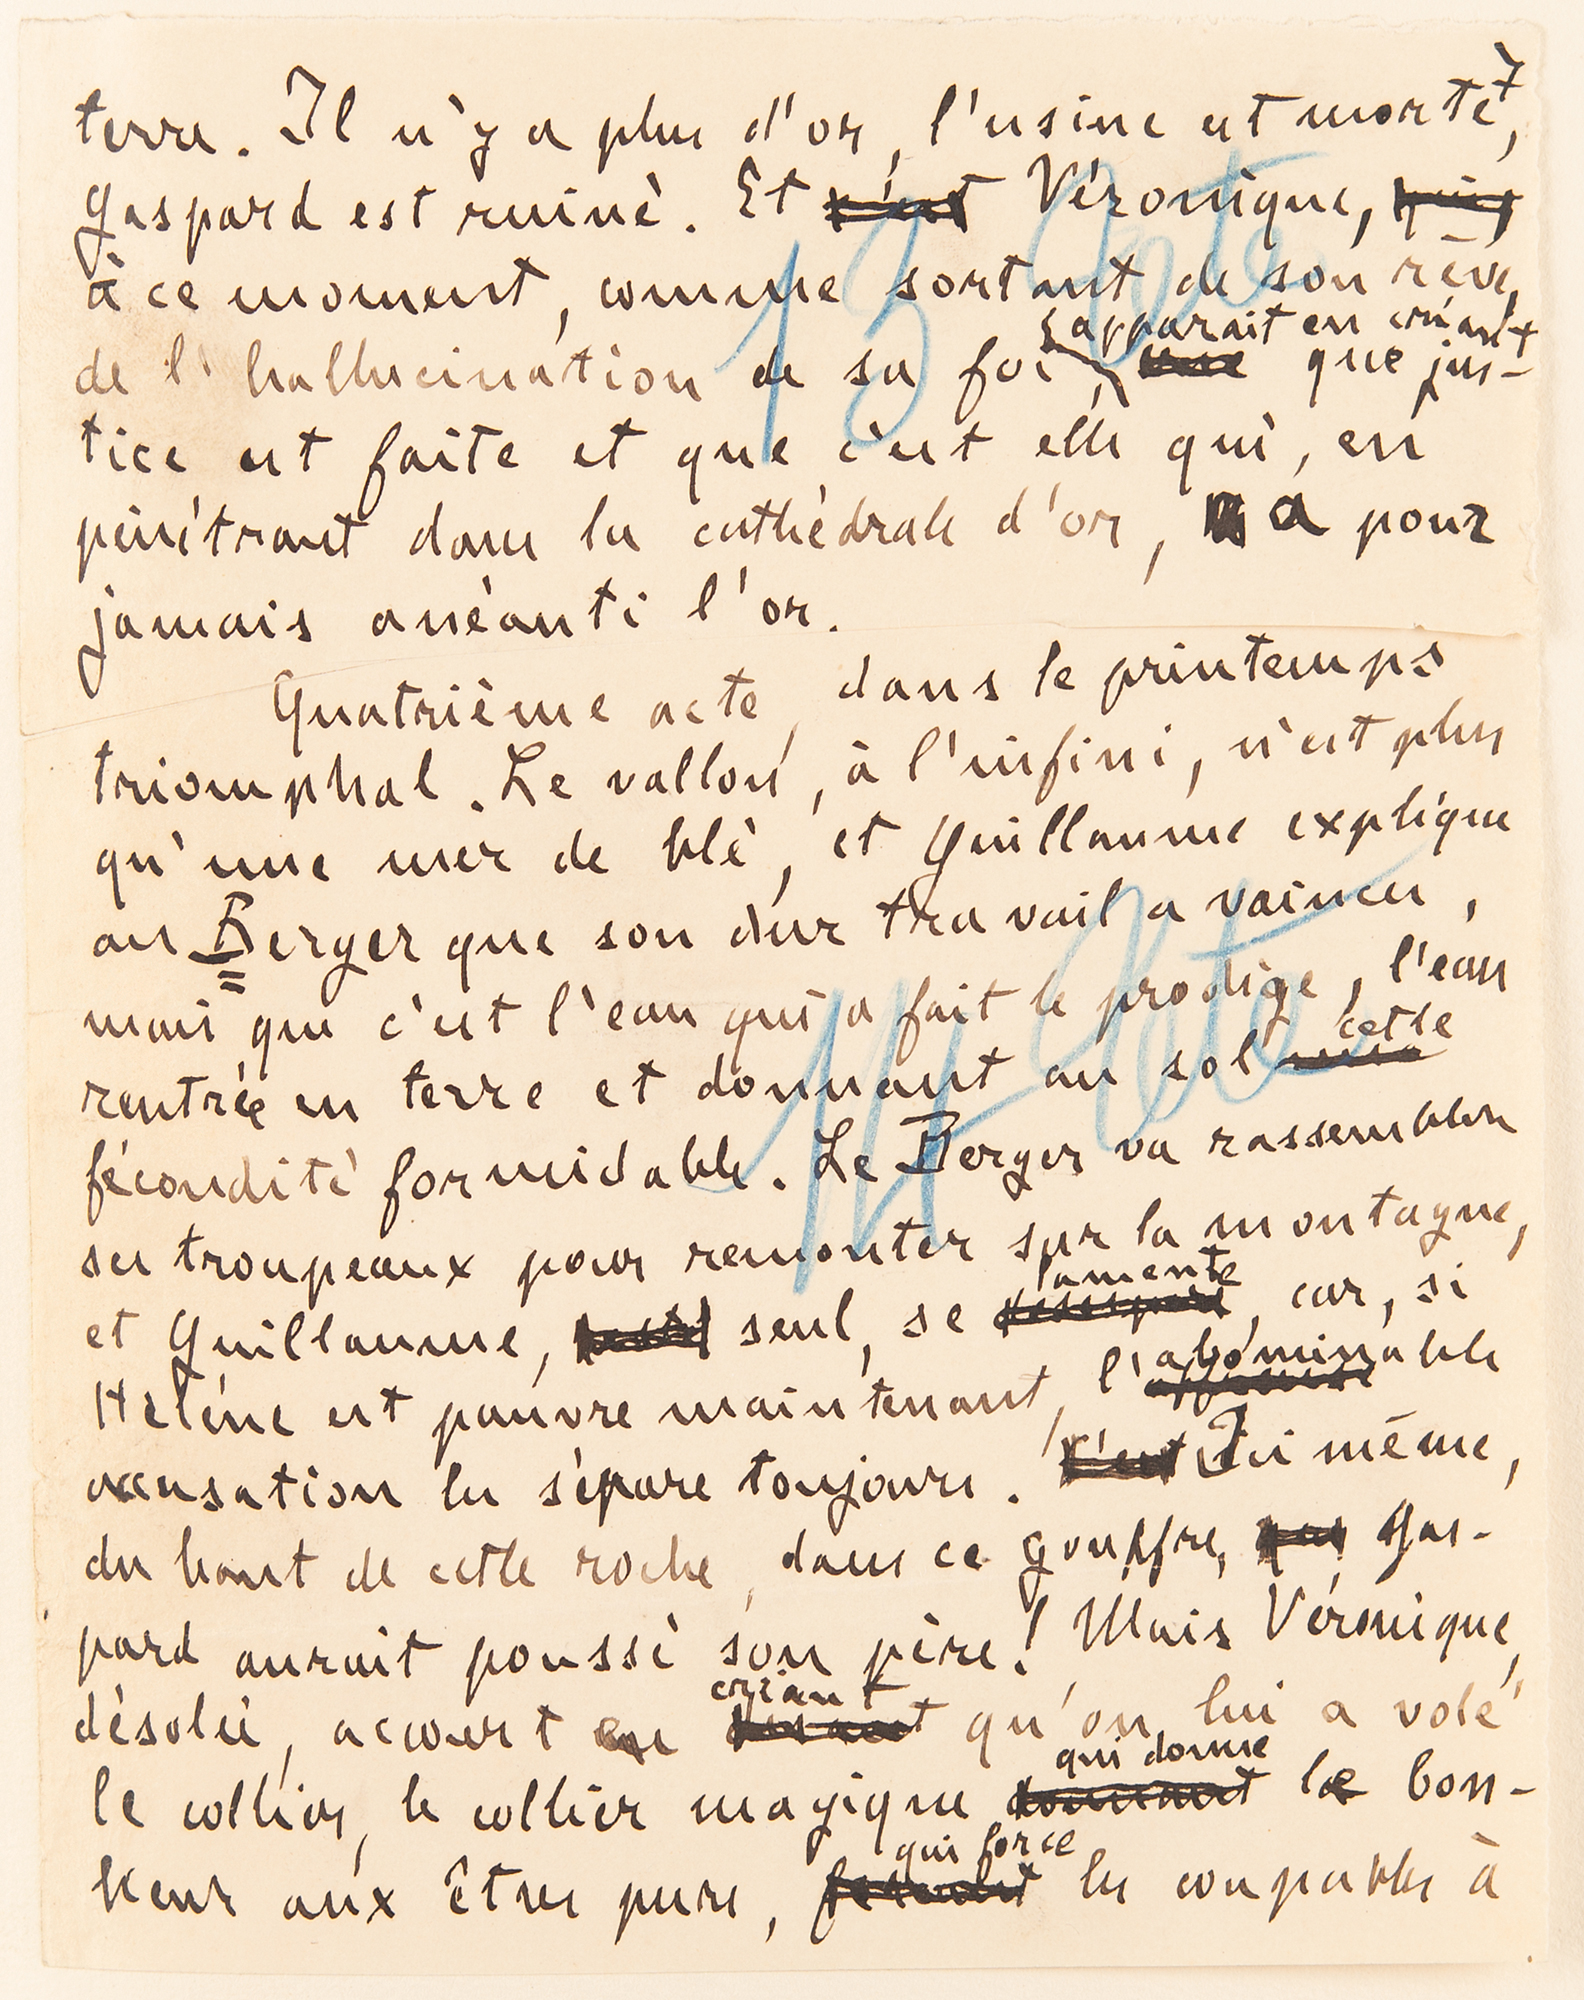 7
terre. Il n'y a plus d'or, l'usine est morte,
Gaspard est ruiné. Et c'est Véronique, qui,
à ce moment, comme sortant de son rêve,
apparait en criant
de l'hallucination de sa foi, que jus-
tice est faite et que c'est elle qui, en
pénétrant dans la cathédrale d'or, a pour
jamais anéanti l'or.
Quatrième acte, dans le printemps
triomphal. Le vallon, à l'infini, n'est plus
qu'une mer de blé, et Guillaume explique
au Berger que son dur travail a vaincu,
mais que c'est l'eau qui a fait le prodige, l'eau
cette
rentrée en terre et donnant au sol
fécondité formidable. Le Berger va rassembler
ses troupeaux pour remonter sur la montagne,
lamente
et Guillaume, seul, se désespère, car, si
abomin
Hélène est pauvre maintenant, l'affreuse able
accusation les sépare toujours. C'est Ici même,
du haut de cette roche, dans ce gouffre, Gas-
pard aurait poussé son père! Mais Véronique,
criant
désolée, accourt en disant qu'on lui a volé
qui donne
le collier, le collier magique donnant le bon-
qui force
heur aux êtres purs, les coupables à